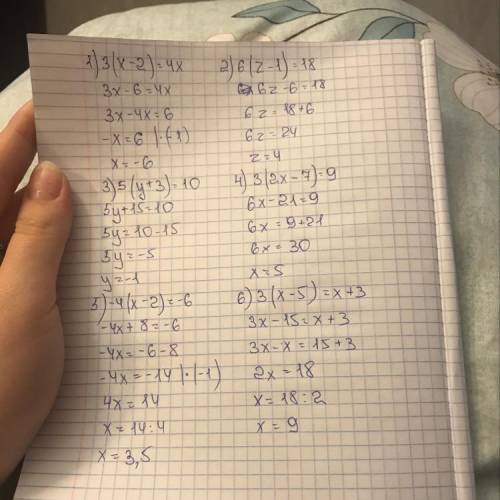 1) 3(x-2)=4x
3x-6=4x
3x-4x=6
-x=6 |·(-1)
x=-6
2) 6(z-1)=18
6z-6=18
6z=18+6
6z=24
z=4
3) 5(y+3)=10
5y+15=10
5y=10-15
5y=-5
y=-1
4) 3(2x-7)=9
6x-21=9
6x=9+21
6x=30
x=5
5) -4(x-2)=-6
-4x+8=-6
-4x=-6-8
-4x=-14 |·(-1)
4x=14
x=14:4
x=3,5
6) 3(x-5)=x+3
3x-15=x+3
3x-x=15+3
2x=18
x=18:2
x=9